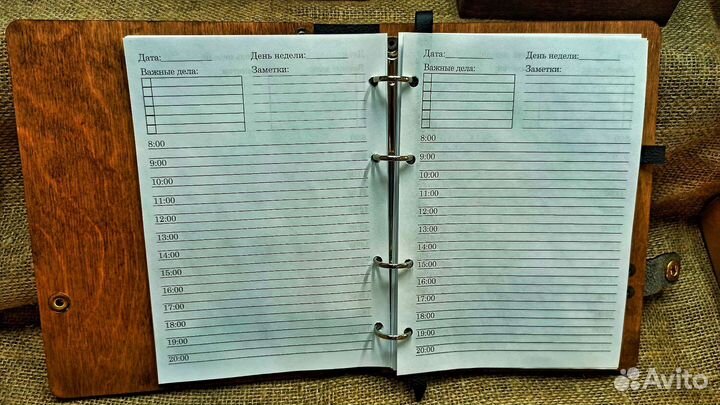 Дата: День недели:
Важные дела: Заметки:
8:00
9:00
10:00
11:00
12:00
13:00
14:00
15:00
16:00
17:00
18:00
19:00
20:00
Дата: День недели:
Важные дела: Заметки:
8:00
9:00
10:00
11:00
12:00
13:00
14:00
15:00
16:00
17:00
18:00
19:00
20:00
Avito